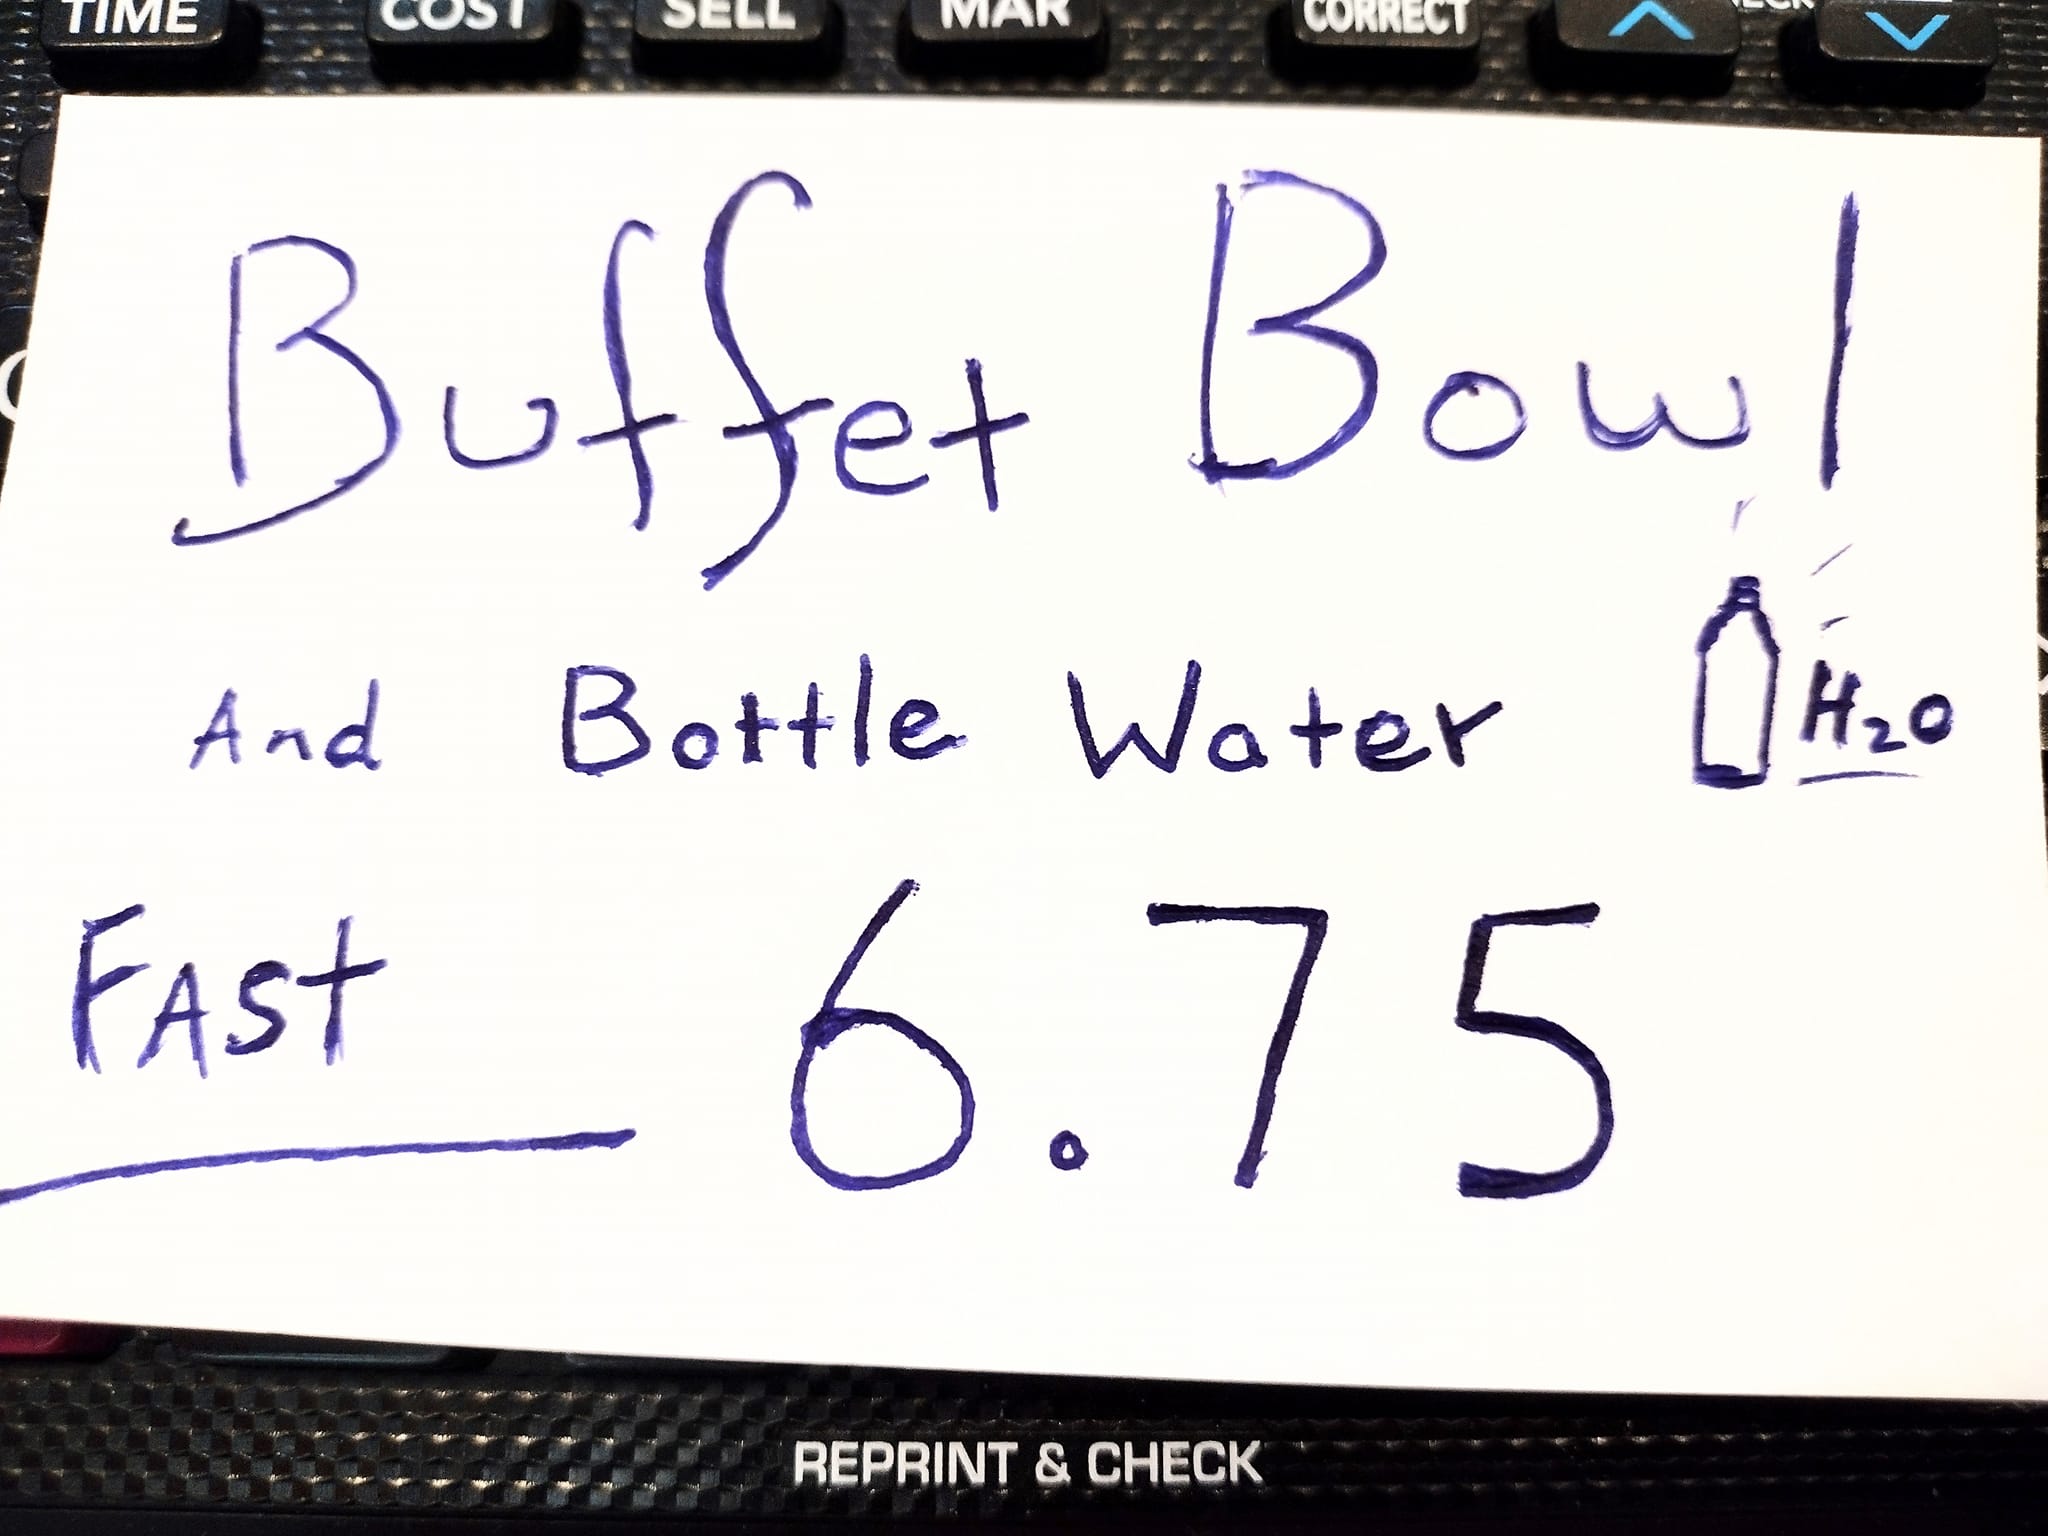 TIME COST SELL MAR CORRECT
Buffet Bowl
And Bottle Water H2O
FAst 6.75
REPRINT & CHECK